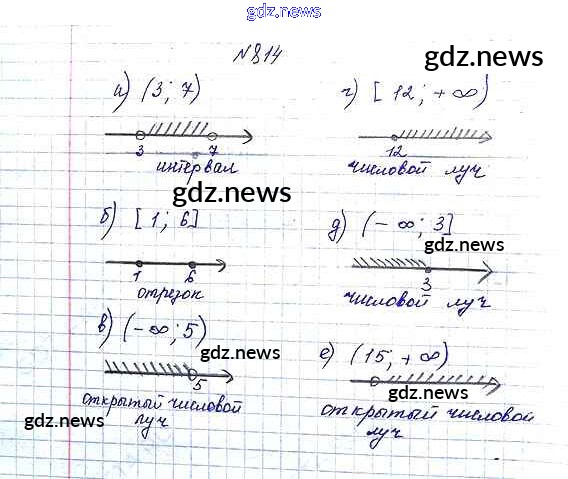 gdz.news
№814
gdz.news
а) (3; 7)
3 7
интервал
г) [12; +∞)
12
числовой луч
gdz.news
б) [1; 6]
1 6
отрезок
д) (-∞; 3]
gdz.news
3
числовой луч
в) (-∞; 5)
gdz.news
5
открытый числовой
луч
gdz.news
е) (15; +∞)
gdz.news
открытый числовой
луч
gdz.news